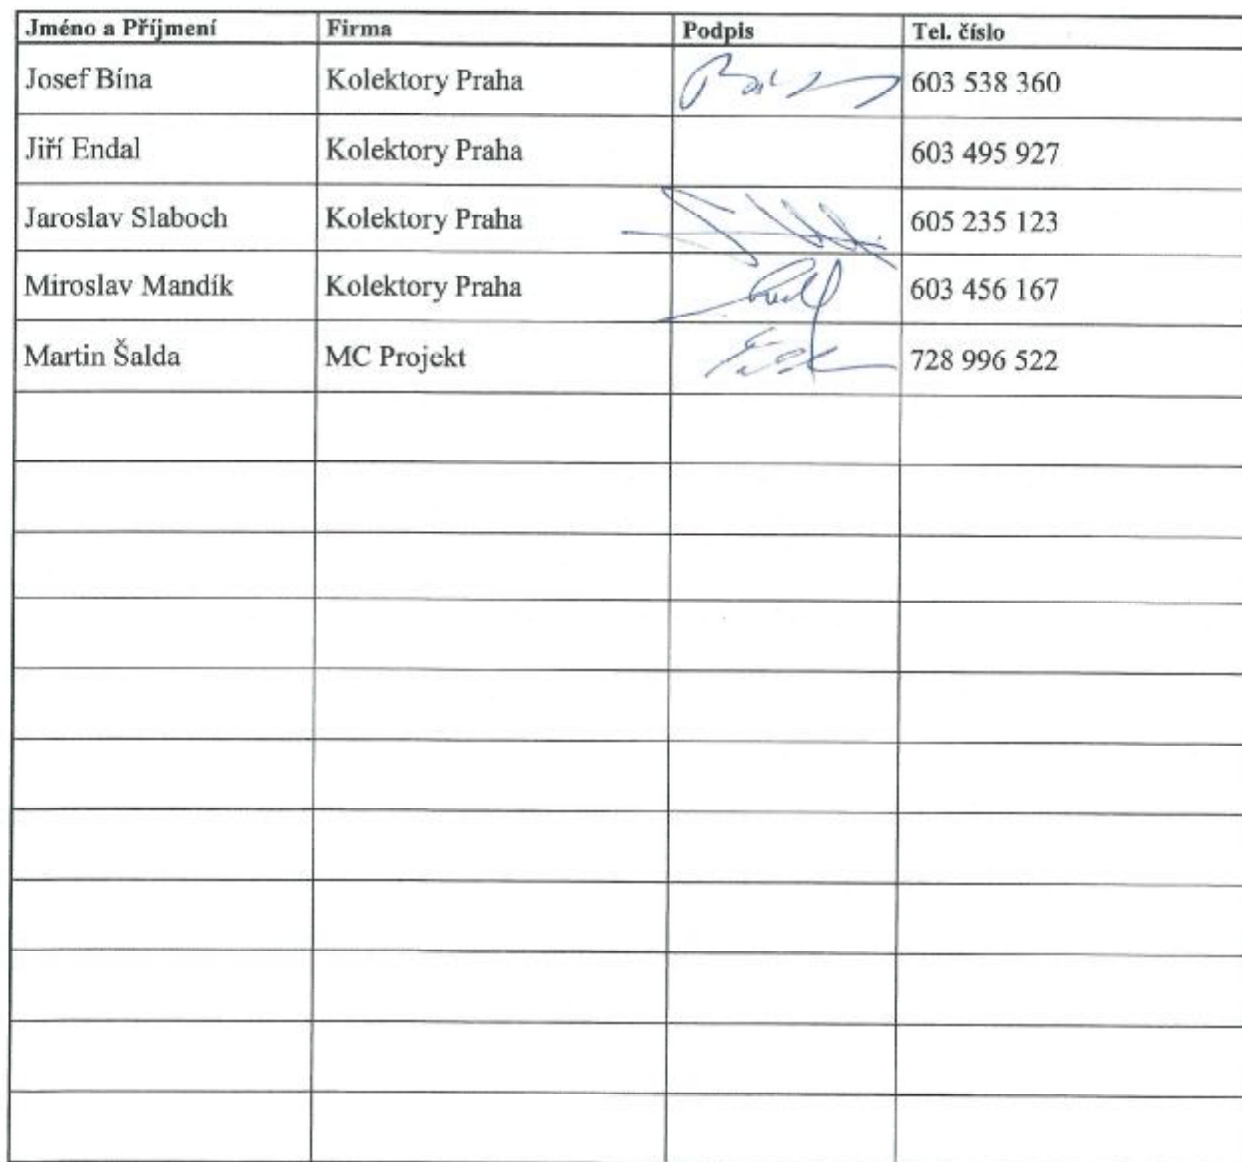 Jméno a Příjmení Firma Podpis Tel. číslo
Josef Bína Kolektory Praha 603 538 360
Jiří Endal Kolektory Praha 603 495 927
Jaroslav Slaboch Kolektory Praha 605 235 123
Miroslav Mandík Kolektory Praha 603 456 167
Martin Šalda MC Projekt 728 996 522